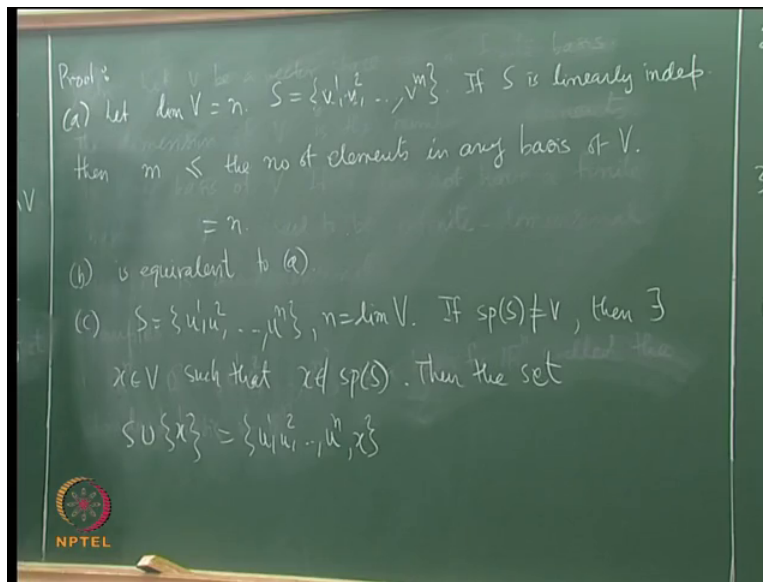 Proof:
(a) Let dim V = n. S = {v¹, v², .., vᵐ}. If S is linearly indep.
then m ≤ the no of elements in any basis of V.
= n.
(b) is equivalent to (a)
(c) S = {u¹, u², .., uⁿ}, n = dim V. If sp(S) ≠ V, then ∃
x ∈ V such that x ∉ sp(S). Then the set
S ∪ {x} = {u¹, u², .., uⁿ, x}
NPTEL